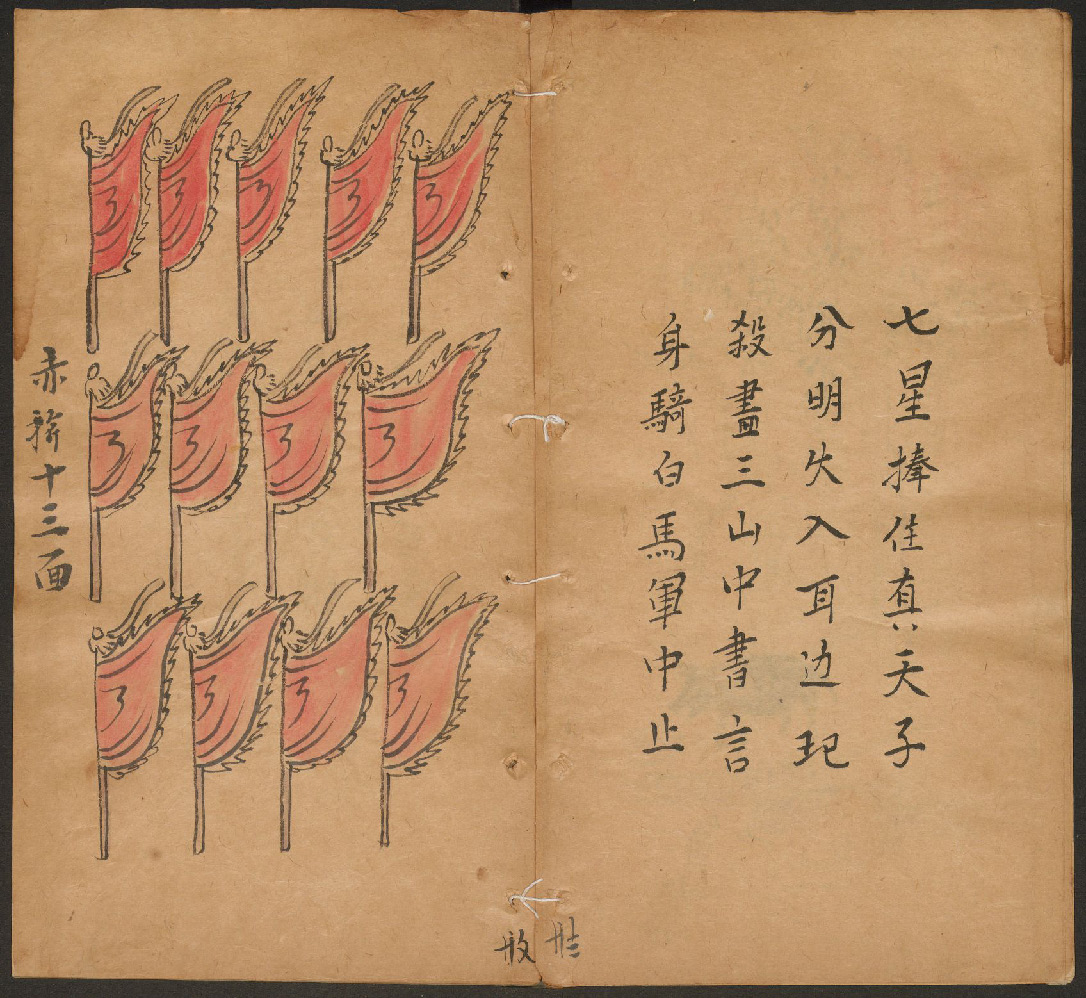 七星捧住真天子
分明入耳边玘
殺畫三山中書言
身騎白馬軍中止
赤十三面